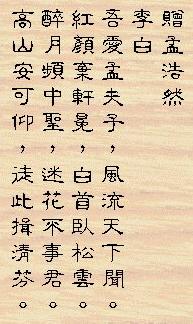 贈孟浩然
李白
吾愛孟夫子，風流天下聞。
紅顏棄軒冕，白首臥松雲。
醉月頻中聖，迷花不事君。
高山安可仰，徒此揖清芬。